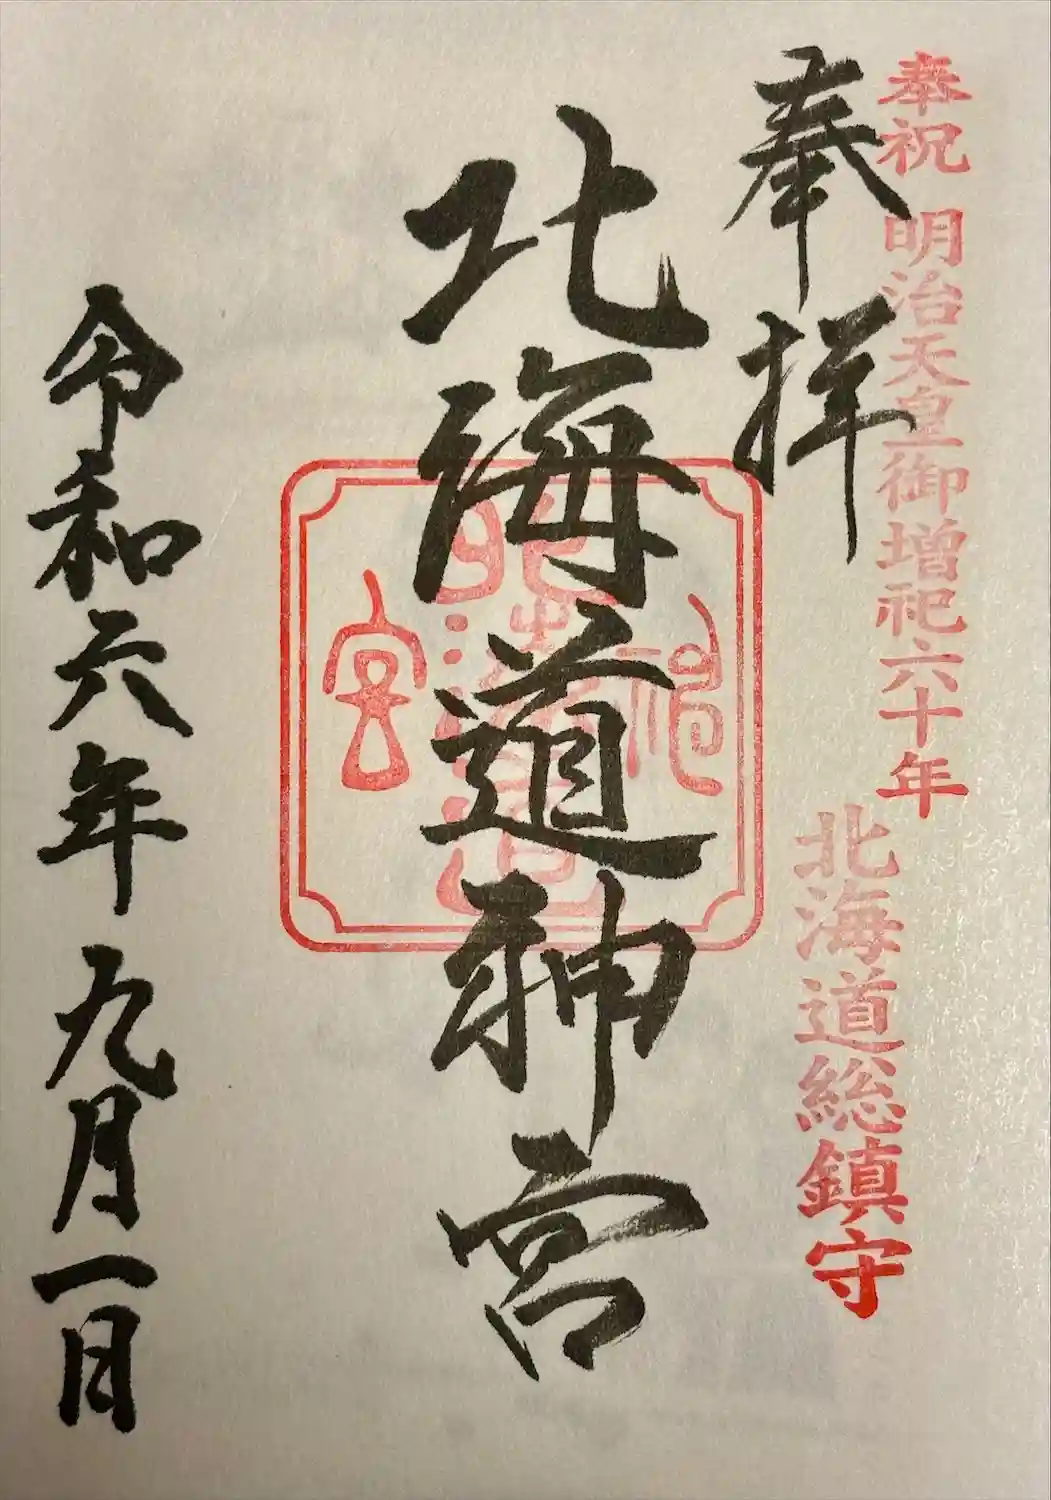 奉祝 明治天皇御増祀六十年
奉拝
北海道総鎮守
北海道神宮
北海道神宮
令和六年九月一日